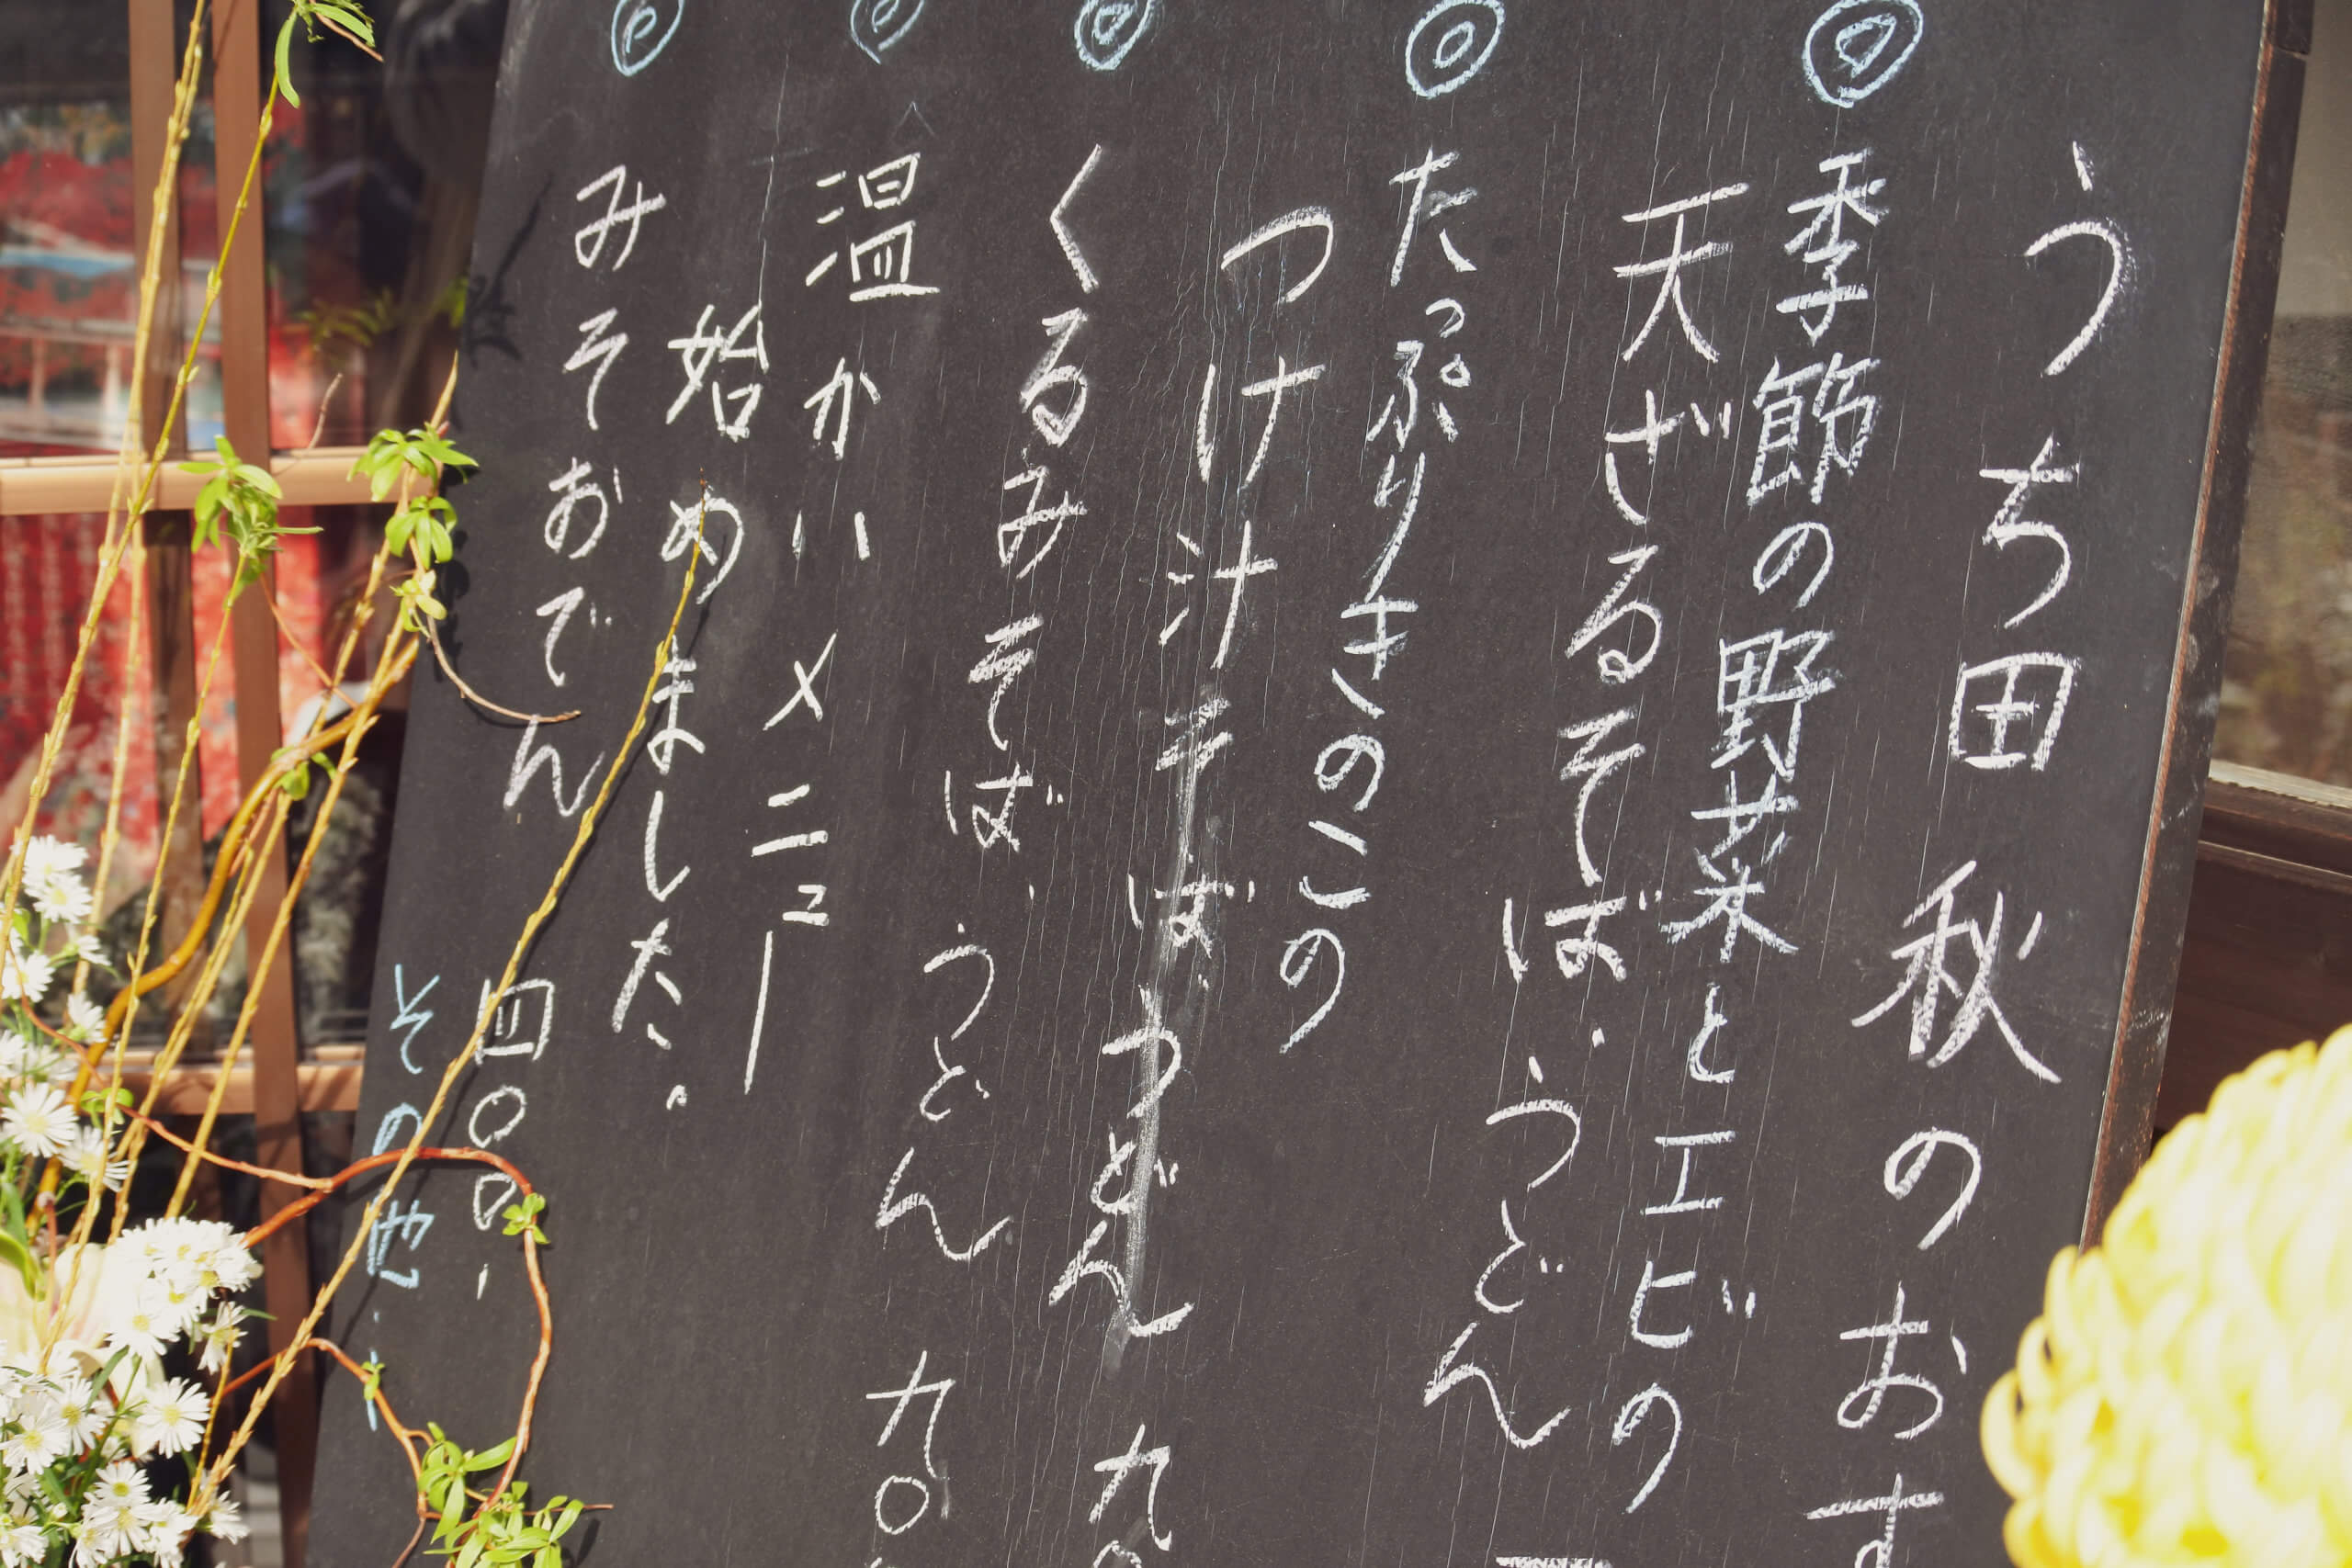 うち田 秋のおす
◎ 季節の野菜とエビの
天ざるそば、うどん
◎ たっぷりきのこの
つけ汁そば、うどん 九〇
◎ くるみそば、うどん 九〇
◎ 温かいメニュー
始めました。
◎ みそおでん 四〇〇、